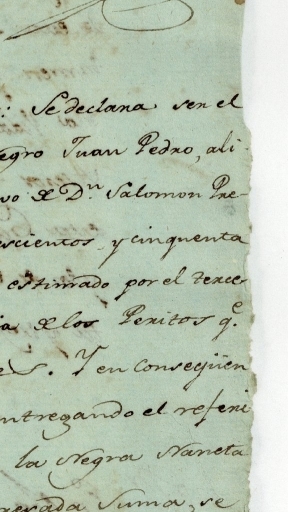 : Se declara ser el
egro Juan Pedro, ali
vo de D.n Salomon Pre-
scientos y cinquenta
estimado por el terce-
ia de los Peritos q.e
es. Y en conseqüen
ntregando el referi
la Negra Naneta
resada Suma, se